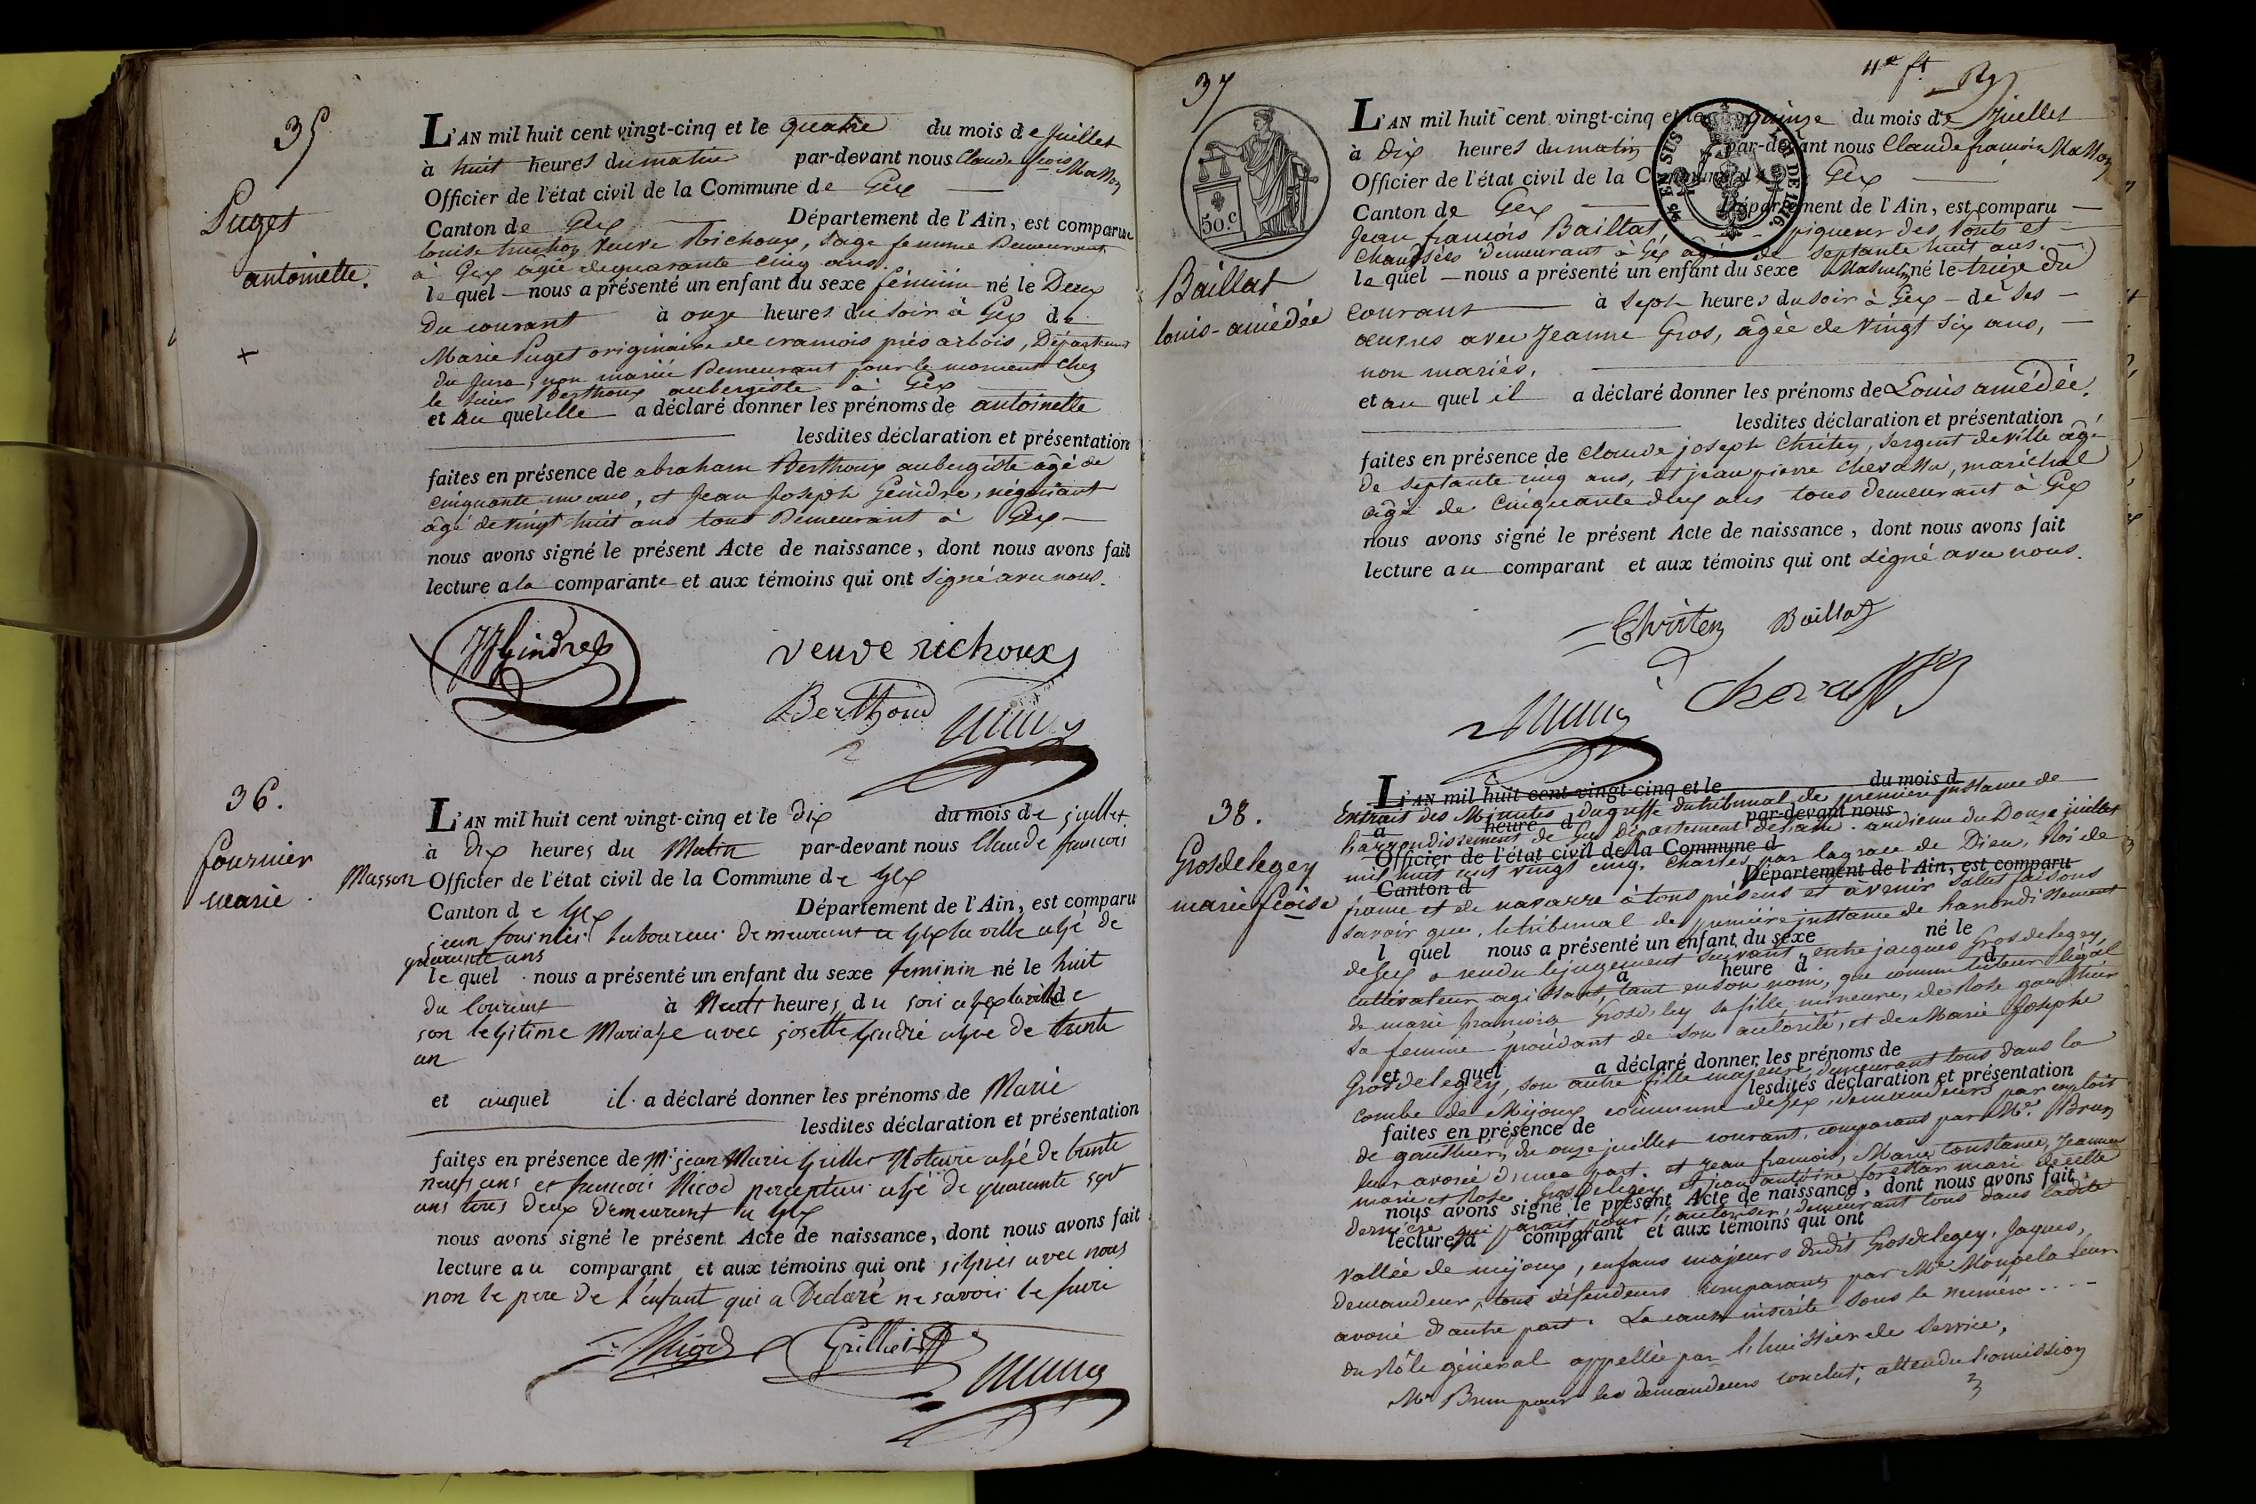 35
Puget
antoinette.
+
L'AN mil huit cent vingt-cinq et le quatre du mois de Juillet
à huit heures du matin par-devant nous Claude fçois Masson
Officier de l'état civil de la Commune de Gex
Canton de Gex Département de l'Ain, est comparue
louise truchon veuve Richoux, sage femme Demeurant
à Gex âgée de quarante cinq ans.
le quel nous a présenté un enfant du sexe féminin né le Deux
Du courant à onze heures du soir à Gex de
Marie Puget originaire de cramois près arbois, Département
du Jura, non mariée Demeurant pour le moment chez
le sieur Berthoux aubergiste à Gex
et au quel elle a déclaré donner les prénoms de antoinette
lesdites déclaration et présentation
faites en présence de abraham Berthoux aubergiste âgé de
cinquante un ans, et Jean Joseph Geindre, négociant
âgé de vingt huit ans tous Demeurant à Gex
nous avons signé le présent Acte de naissance, dont nous avons fait
lecture a la comparante et aux témoins qui ont signé avec nous.
JJ Gindre
veuve richoux
Berthoud
36.
fournier
marie.
L'AN mil huit cent vingt-cinq et le dix du mois de juillet
à dix heures du Matin par-devant nous Claude francois
Masson Officier de l'état civil de la Commune de Gex
Canton de Gex Département de l'Ain, est comparu
jean fournier laboureur demeurant a Gex la ville agé de
quarante ans
le quel nous a présenté un enfant du sexe feminin né le huit
du Courant à Neuf heures du soir a Gex la ville de
son legitime Mariage avec josette agee de trente
un
et auquel il a déclaré donner les prénoms de Marie
lesdites déclaration et présentation
faites en présence de Mr jean Marie Grillet Notaire agé de trente
neuf ans et francois Nicod percepteur agé de quarante sept
ans tous deux demeurant a Gex
nous avons signé le présent Acte de naissance, dont nous avons fait
lecture au comparant et aux témoins qui ont signés avec nous
non le pere de l'enfant qui a Declaré ne savoir le faire
Nicod Grilliet
37
50.c
LOI DE 1816.
Baillat
louis-amédée
L'AN mil huit cent vingt-cinq et le quinze du mois de Juillet
à dix heures du matin par-devant nous Claude francois Masson
Officier de l'état civil de la Commune de Gex
Canton de Gex Département de l'Ain, est comparu
Jean francois Baillat piqueur des Ponts et
chaussées demeurant à Gex âgé de septante huit ans.
le quel nous a présenté un enfant du sexe Masculin né le treize du
courant à sept heures du soir à Gex de ses
œuvres avec Jeanne Gros, âgée de vingt six ans,
non mariés.
et au quel il a déclaré donner les prénoms de Louis amédée.
lesdites déclaration et présentation
faites en présence de Claude joseph Chriten, sergent de ville âgé
de septante cinq ans, et jean pierre Chevassu, maréchal
âgé de cinquante deux ans tous demeurant à Gex
nous avons signé le présent Acte de naissance, dont nous avons fait
lecture au comparant et aux témoins qui ont signé avec nous.
Chriten Baillat
Chevassu
38.
Grosdelegey
marie fçoise
L'AN mil huit cent vingt-cinq et le du mois d
Extrait des Minutes du greffe du tribunal de première instance de
à heure d par-devant nous
l'arrondissement de Gex département de l'ain. audience du Douze juillet
Officier de l'état civil de la Commune d
mil huit cent vingt cinq. Charles, par la grace de Dieu, Roi de
Canton d Département de l'Ain, est comparu
france et de navarre à tous présens et à venir salut faisons
savoir que, le tribunal de première instance de l'arrondissement
l quel nous a présenté un enfant du sexe né le
de Gex a rendu le jugement suivant, entre jacques Grosdelegey,
à heure d d
cultivateur agissant, tant en son nom, que comme tuteur légal
de marie francoise Grosdelegey, sa fille mineure, de Rose gauthier
sa femme procédant de son autorité, et de Marie Josephe
et quel a déclaré donner les prénoms de
Grosdelegey, son autre fille majeure, demeurant tous dans la
lesdites déclaration et présentation
combe de Mijoux commune de Gex, demandeurs par exploit
faites en présence de
de gauthier, du onze juillet courant, comparans par Me. Brun
leur avoué d'une part. et Jean francois, Marie Constance, Jeanne
marie et Rose Grosdelegey et jean antoine mari de cette
nous avons signé le présent Acte de naissance, dont nous avons fait
dernière qui parait pour l'autoriser, demeurant tous dans ladite
lecture a comparant et aux témoins qui ont
vallée de mijoux, enfans majeurs dudit Grosdelegey, Jaques,
demandeur, tous défendeurs comparans par Me Mongela leur
avoué d'autre part. La cause inscrite sous le numéro ....
du Rôle général appellée par l'huissier de service,
Me Brun pour les demandeurs conclut; attendu l'omission